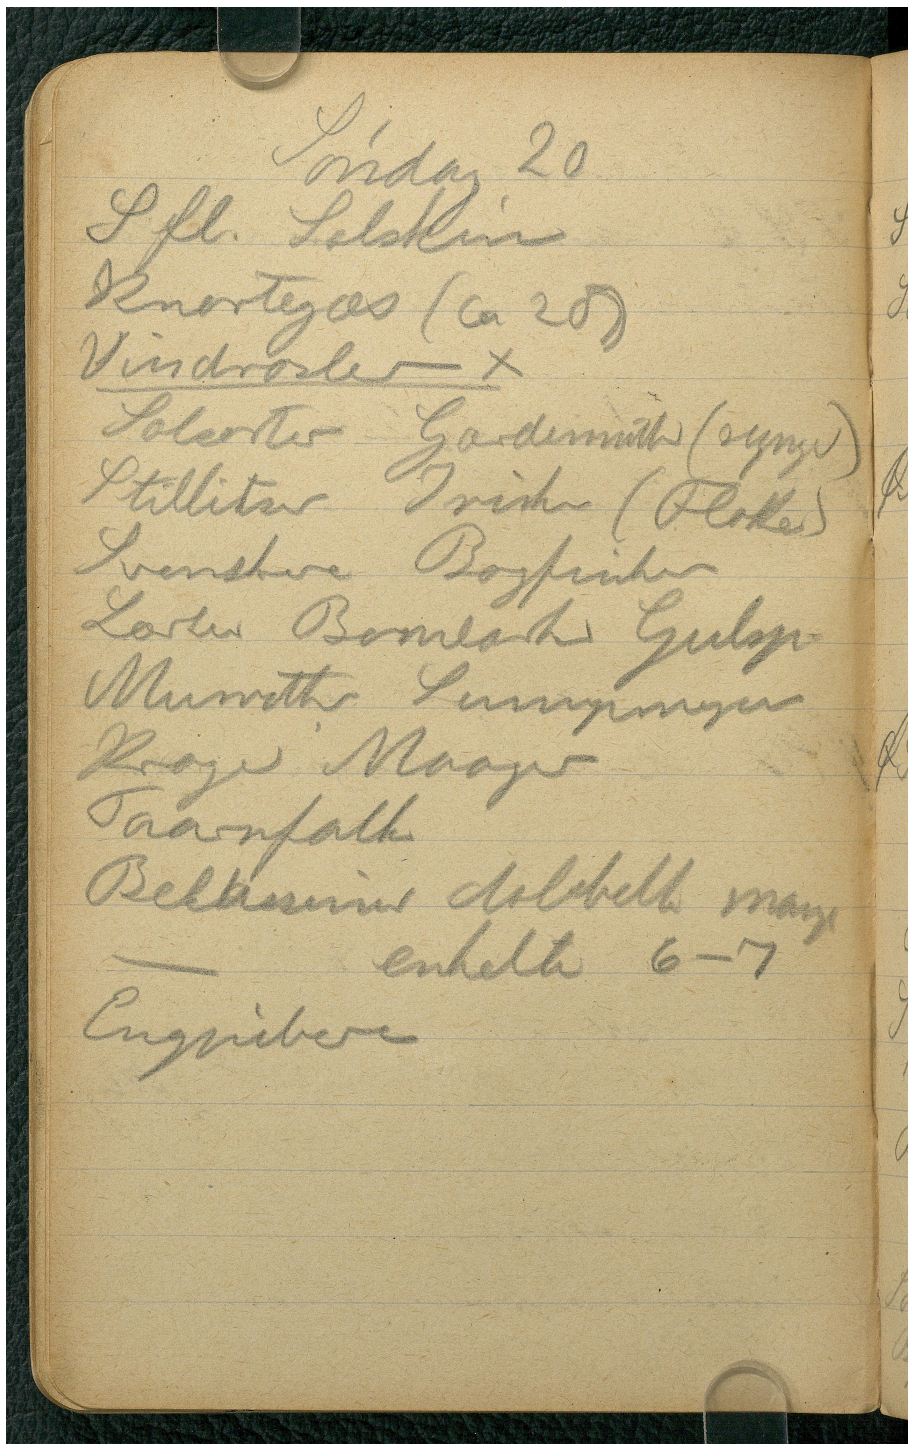 Søndag 20
S fl. Solskin
Knortegæs (ca 28)
Vindrosler x
Solsorter Gærdesmutter (synge)
Stillitser Irisker (Flokke)
Svenskere Bogfinker
Lærker Bomlærker Gulsp.
Musvitter Sumpmejser
Krager Maager
Taarnfalk
Bekkasiner dobbelte mange
— enkelte 6–7
Engpibere